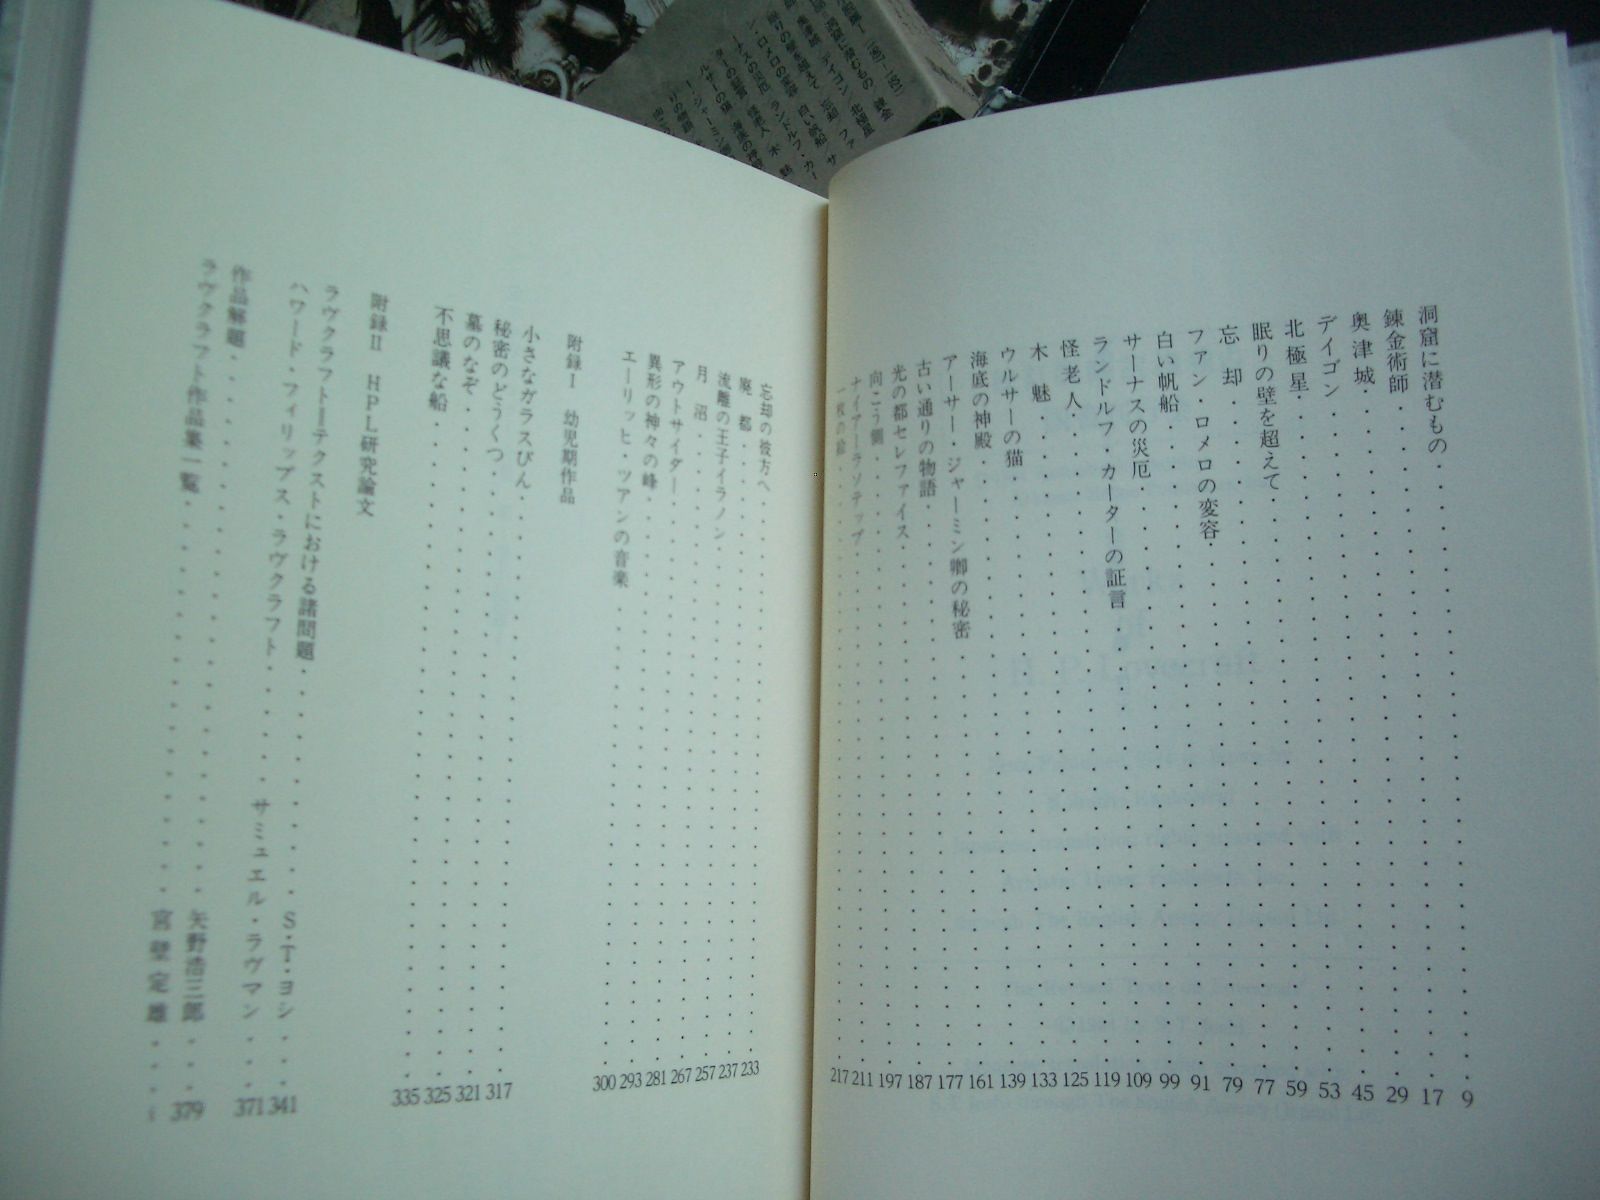 洞窟に潜むもの 9
錬金術師 17
奥津城 29
デイゴン 45
北極星 53
眠りの壁を超えて 59
忘却 77
ファン・ロメロの変容 79
白い帆船 91
サーナスの災厄 99
ランドルフ・カーターの証言 109
怪老人 119
木魅 125
ウルサーの猫 133
海底の神殿 139
アーサー・ジャーミン卿の秘密 161
古い通りの物語 177
光の都セレファイス 187
向こう側 197
ナイアーラソテップ 211
一枚の絵 217
忘却の彼方へ 233
廃都 237
流離の王子イラノン 257
月沼 267
アウトサイダー 281
異形の神々の峰 293
エーリッヒ・ツアンの音楽 300
附録I 幼児期作品
小さなガラスびん 317
秘密のどうくつ 321
墓のなぞ 325
不思議な船 335
附録II HPL研究論文
ラヴクラフト＝テクストにおける諸問題 S・T・ヨシ 341
ハワード・フィリップス・ラヴクラフト サミュエル・ラヴマン 371
作品解題 矢野浩三郎 379
ラヴクラフト作品集一覧 宮壁定雄